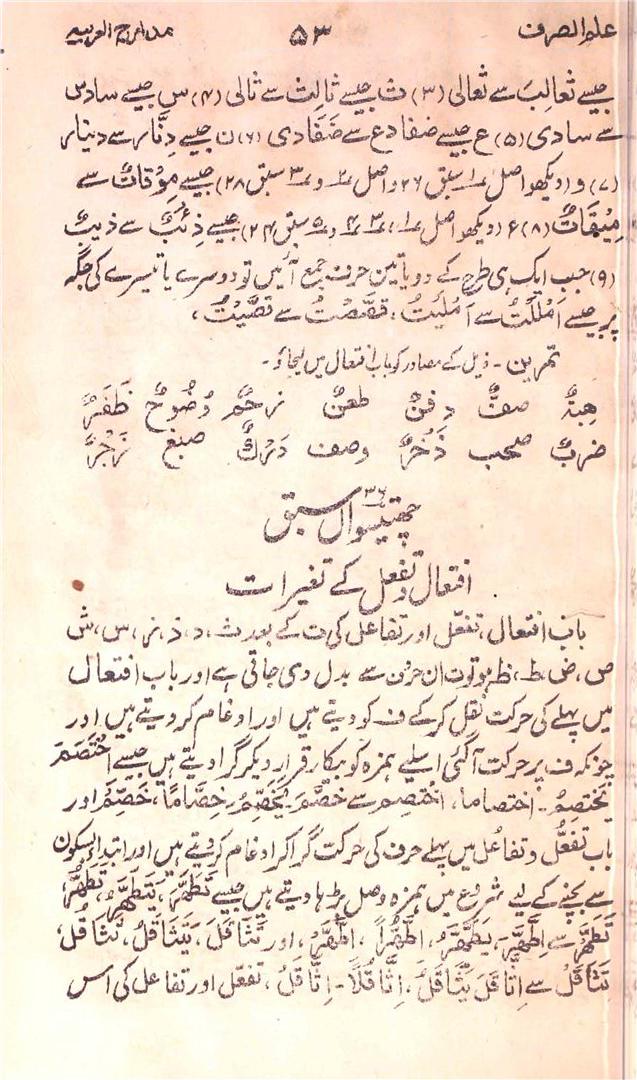 علم الصرف ۵۳ مدارج العربیہ
جیسے ثعالب سے ثعالی (۳) ث جیسے ثالث سے ثالی (۴) س جیسے سادس
سے سادی (۵) ع جیسے ضفادع سے ضفادی (۶) ن جیسے دِنّار سے دینار
(۷) و (دیکھو اصل ۱ سبق ۲۶ و اصل ۲ و ۳ سبق ۲۸) جیسے مِوْقاتٌ سے
مِیْقَاتٌ (۸) ء (دیکھو اصل ۱، ۳ ۴ و ۵ سبق ۲۴) جیسے ذِئبٌ سے ذیبٌ
(۹) جب ایک ہی طرح کے دو یا تین حرف جمع آئیں تو دوسرے یا تیسرے کی جگہ
پر جیسے اَمْلَلْتُ سے اَمْلَیْتُ، قصّصْتُ سے قصّیْتُ،
تمرین - ذیل کے مصادر کو باب افتعال میں لیجاؤ۔
هِبَةٌ صفٌّ دفنٌ طعنٌ زحمٌ وُضُوحٌ ظَفَرٌ
ضربٌ صحب ذُخْرٌ وصف دَرَكٌ صبغ زَجْرٌ
۳۶
چھتیسواں سبق
افتعال و تفعل کے تغیرات
باب افتعال، تفعّل اور تفاعل کی ت کے بعد ث، د، ذ، ز، س، ش
ص، ض، ط، ظ ہو تو ت ان حرفوں سے بدل دی جاتی ہے اور باب افتعال
میں پہلے کی حرکت نقل کر کے ف کو دیتے ہیں اور ادغام کر دیتے ہیں اور
چونکہ ف پر حرکت آگئی اسلیے ہمزہ کو بیکار قرار دیکر گرا دیتے ہیں جیسے اخْتَصَمَ
یَخْتَصِمُ۔ اختصاما، اختصم سے خصَّمَ۔ یَخَصِّمُ۔ خِصَّامًا، خَصِّمْ اور
باب تفعُّل و تفاعُل میں پہلے حرف کی حرکت گرا کر ادغام کر دیتے ہیں اور ابتدا بسکون
سے بچنے کے لیے شروع میں ہمزہ وصل بڑھا دیتے ہیں جیسے تَطَهَّرَ، یَتَطَهَّرُ، تَطَهُّرً،
تَطَهَّرْ سے اِطَّهَّرَ۔ یَطَّهَّرُ، اِطَّهُّراً، اِطَّهَّرْ، اور تَثَاقَلَ، یَتَثَاقَلُ، تَثَاقُلً،
تَثَاقَلْ سے اِثَّاقَلَ یَثَّاقَلُ، اِثَّاقُلًا۔ اِثَّاقَلْ، تفعّل اور تفاعل کی اس